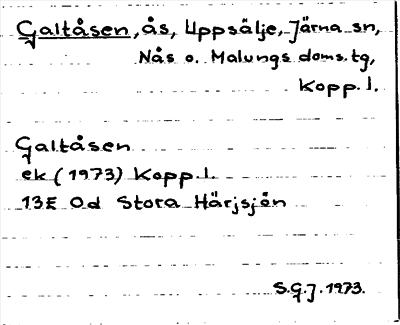 Galtåsen, ås, Uppsälje, Järna sn,
Nås o. Malungs doms.tg,
Kopp. l.
Galtåsen
ek (1973) Kopp. l.
13E 0d Stora Härjsjön
S.G.J. 1973.